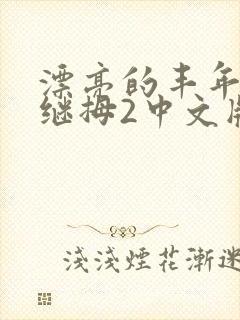 漂亮的丰年
继拇2中文版
淺淺煙花漸迷